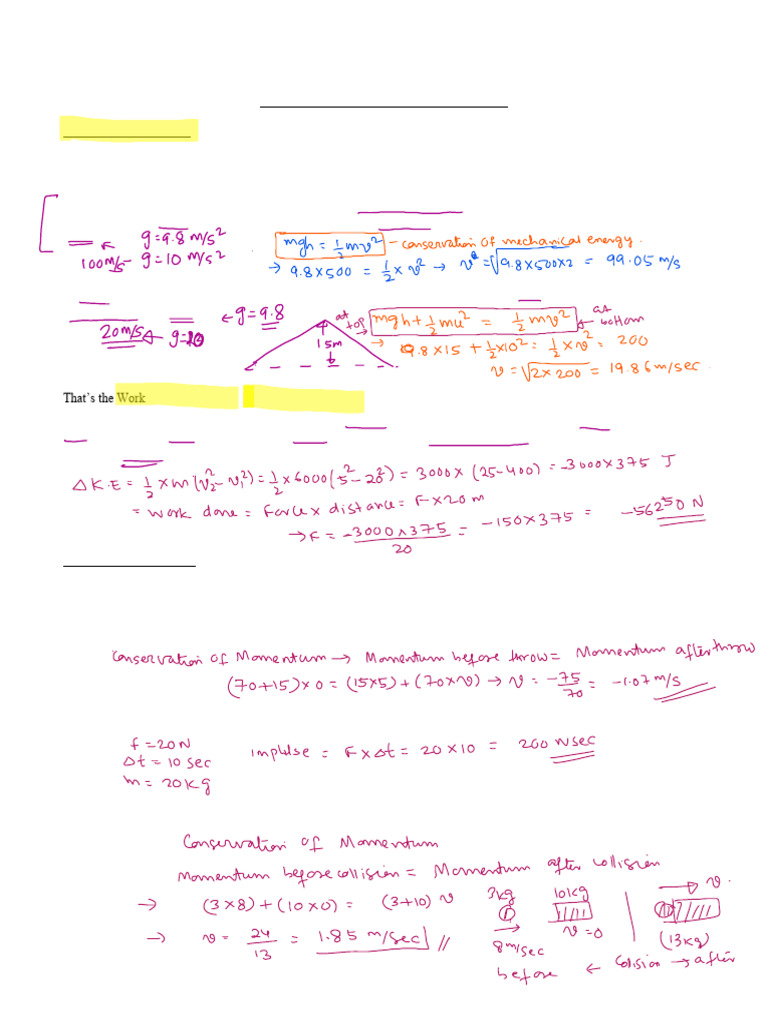 g=9.8 m/s²
100m/s ← g=10 m/s²
mgh = ½mv² - conservation of mechanical energy.
→ 9.8×500 = ½×v² → v² = √9.8×500×2 = 99.05 m/s
20m/s ← g=10
← g=9.8
at top
15m
mgh+½mu² = ½mv² ← at bottom
→ 9.8×15 + ½×10² = ½×v² = 200
v = √2×200 = 19.86 m/sec.
That's the Work
ΔK.E = ½×m(v₂²-v₁²) = ½×6000(5²-20²) = 3000×(25-400) = -3000×375 J
= Work done = Force × distance = F×20m
→ F = -3000×375/20 = -150×375 = -56250 N
Conservation of Momentum → Momentum before throw = Momentum after throw
(70+15)×0 = (15×5)+(70×v) → v = -75/70 = -1.07 m/s
f = 20N
Δt = 10 sec
m = 20kg
impulse = F×Δt = 20×10 = 200 Nsec
Conservation of Momentum
Momentum before collision = Momentum after collision
→ (3×8)+(10×0) = (3+10) v
→ v = 24/13 = 1.85 m/sec //
3kg 10kg → v.
8m/sec v=0 (13kg)
before ← Colision → after